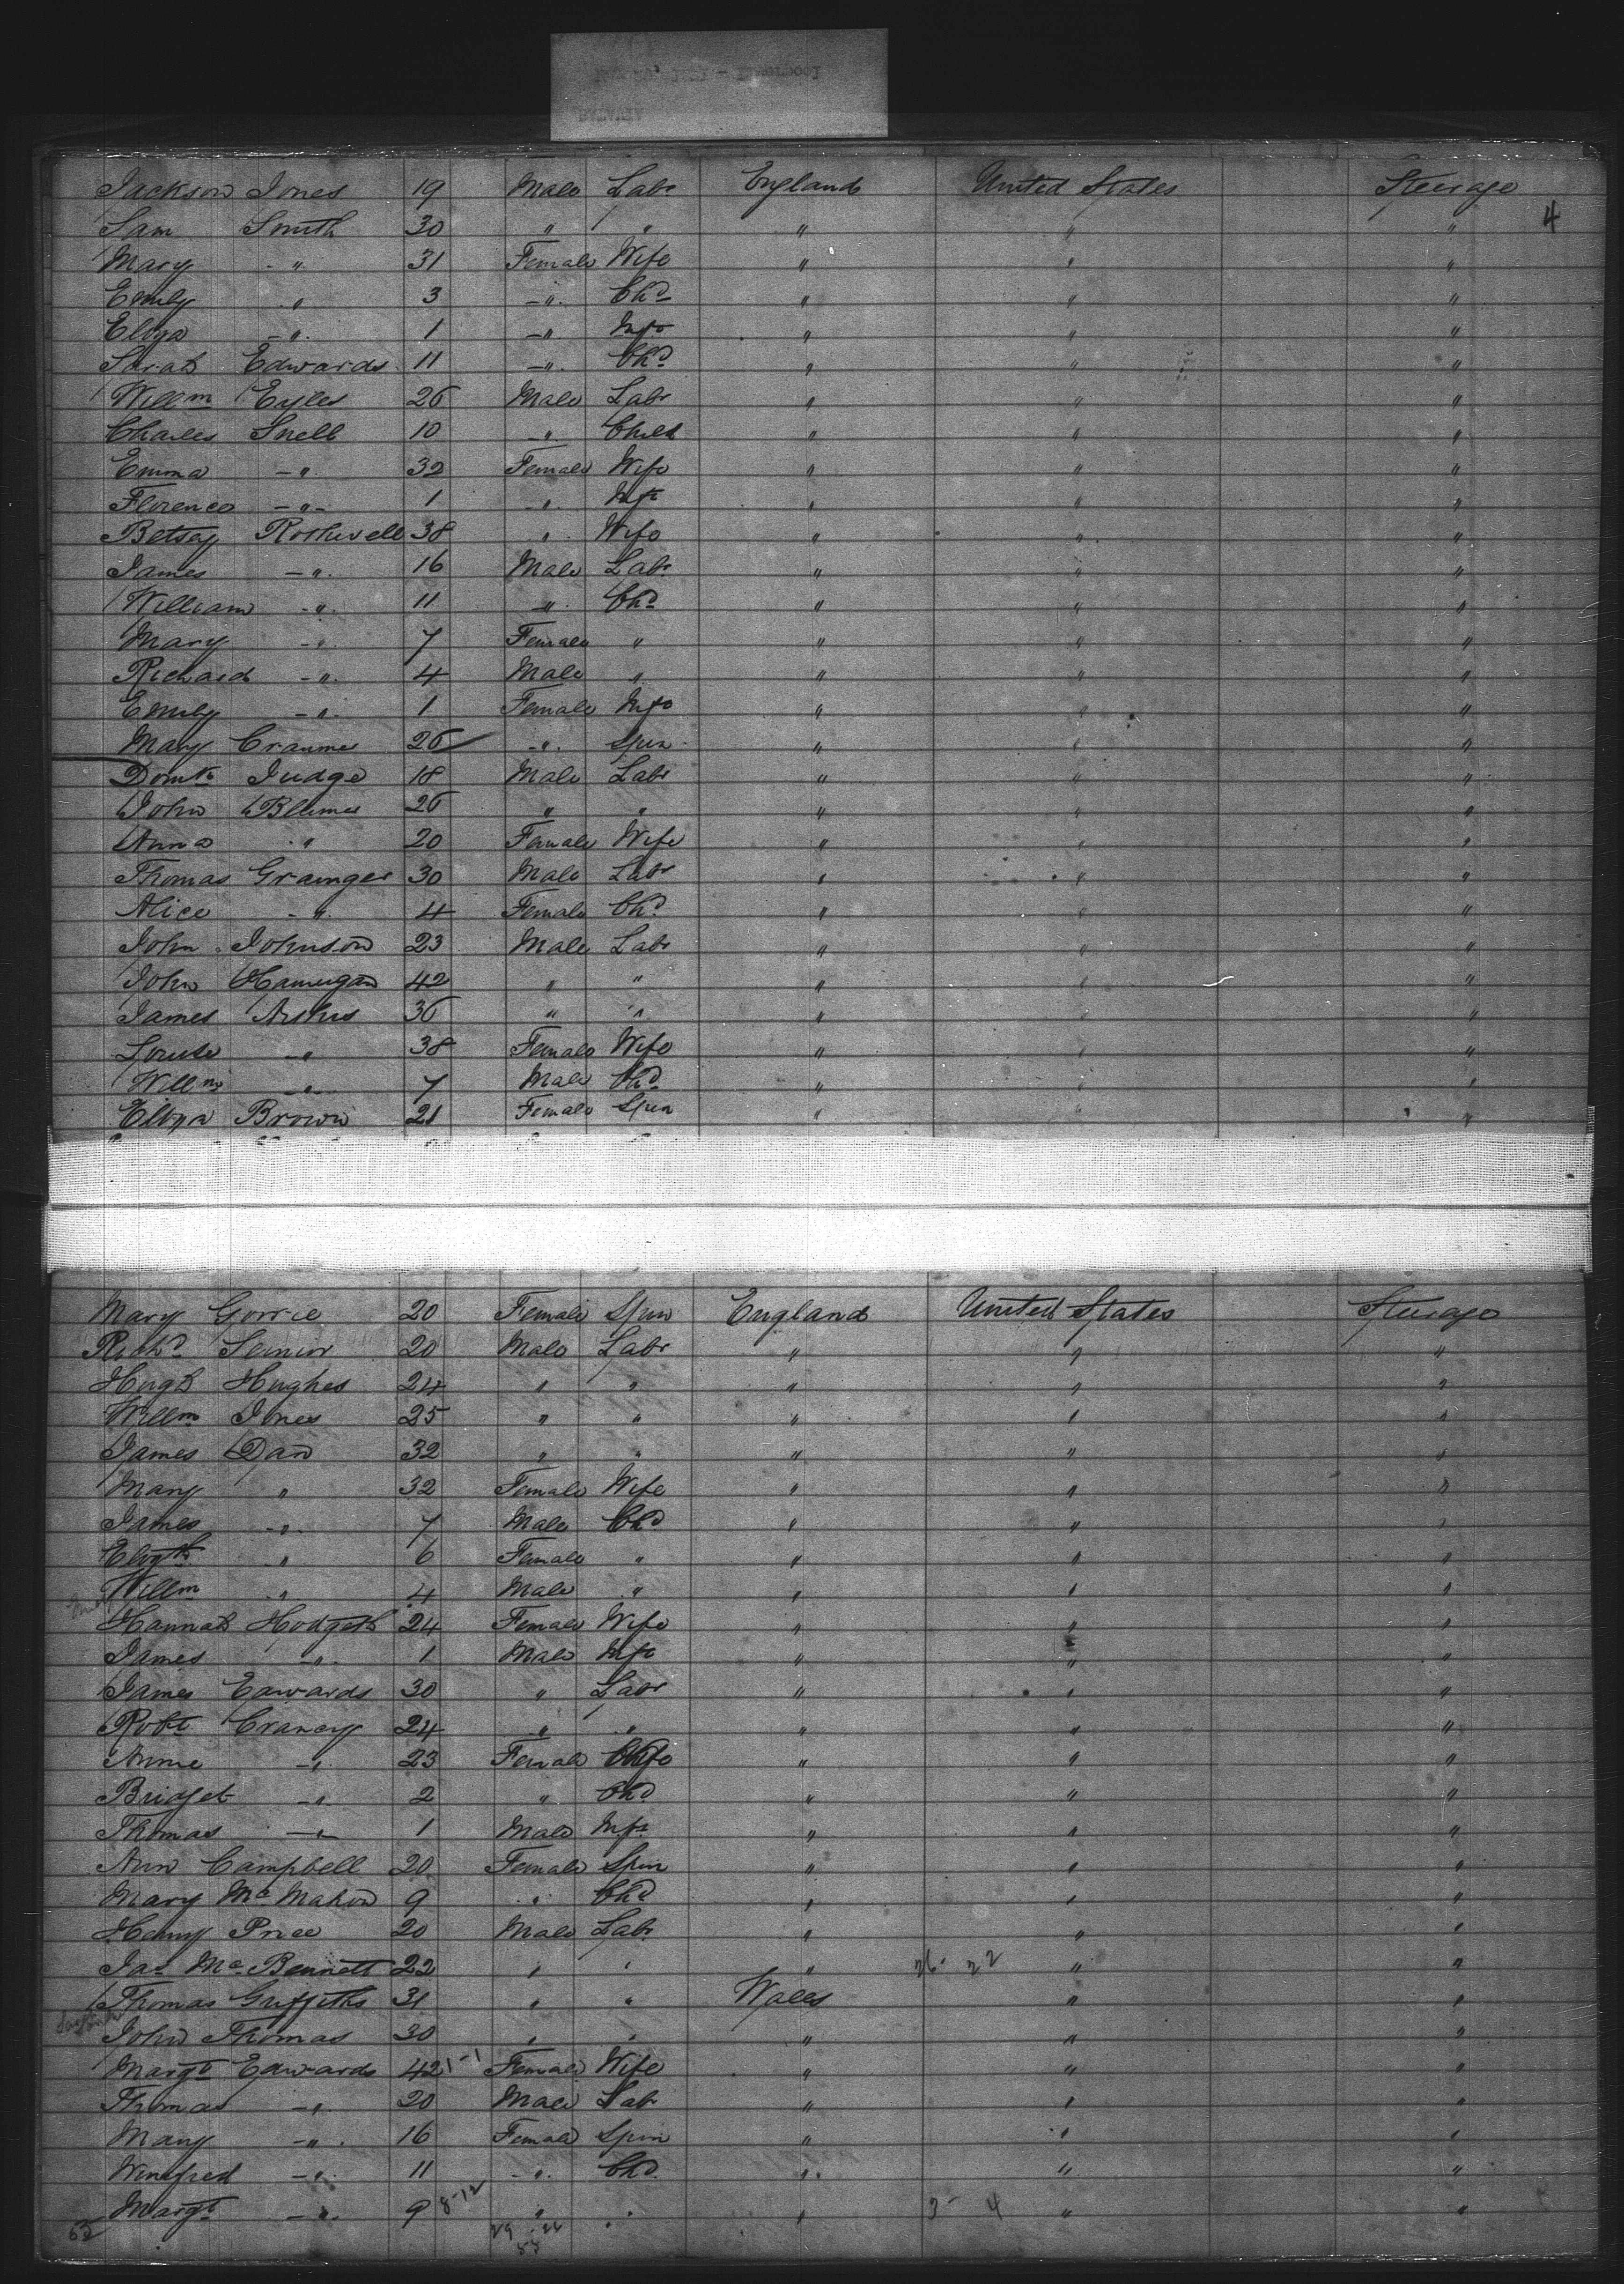 4
Jackson Jones 19 Male Labr England United States Steerage
Sam Smith 30 " " " " "
Mary " 31 Female Wife " " "
Emily " 3 " Chd " " "
Eliza " 1 " Inft " " "
Sarah Edwards 11 " Chd " " "
Willm Eyles 26 Male Labr " " "
Charles Snell 10 " Child " " "
Emma " 32 Female Wife " " "
Florence " 1 " Inft " " "
Betsey Rothwell 38 " Wife " " "
James " 16 Male Labr " " "
William " 11 " Chd " " "
Mary " 7 Female " " " "
Richard " 4 Male " " " "
Emily " 1 Female Inft " " "
Mary Cranmer 26 " Spin " " "
Domk Judge 18 Male Labr " " "
John 26 " " " " "
Anna " 20 Female Wife " " "
Thomas Grainger 30 Male Labr " " "
Alice " 4 Female Chd " " "
John Johnson 23 Male Labr " " "
John 42 " " " " "
James 36 " " " " "
Louise " 38 Female Wife " " "
Willm " 7 Male Chd " " "
Eliza Brown 21 Female Spin " " "
Mary Gorrie 20 Female Spin England United States Steerage
Richd Senior 20 Male Labr " " "
Hugh Hughes 24 " " " " "
Willm Jones 25 " " " " "
James Dan 32 " " " " "
Mary " 32 Female Wife " " "
James " 7 Male Chd " " "
Elizth " 6 Female " " " "
Willm " 4 Male " " " "
Hannah Hodgeth 24 Female Wife " " "
James " 1 Male Inft " " "
James Edwards 30 " Labr " " "
Robt Craney 24 " " " " "
Annie " 23 Female Wife " " "
Bridget " 2 " Chd " " "
Thomas " 1 Male Inft " " "
Ann Campbell 20 Female Spin " " "
Mary McMahon 9 " Chd " " "
Henry Price 20 Male Labr " " "
Jas McBennett 22 " " " 26 - 22 " "
Thomas Griffiths 31 " " Wales " "
John Thomas 30 " " " " "
Margt Edwards 42 1-1 Female Wife " " "
Thomas " 20 Male Labr " " "
Mary " 16 Female Spin " " "
Winefred " 11 " Chd " " "
Margt " 9 8-12 " " " 3 - 4 " "